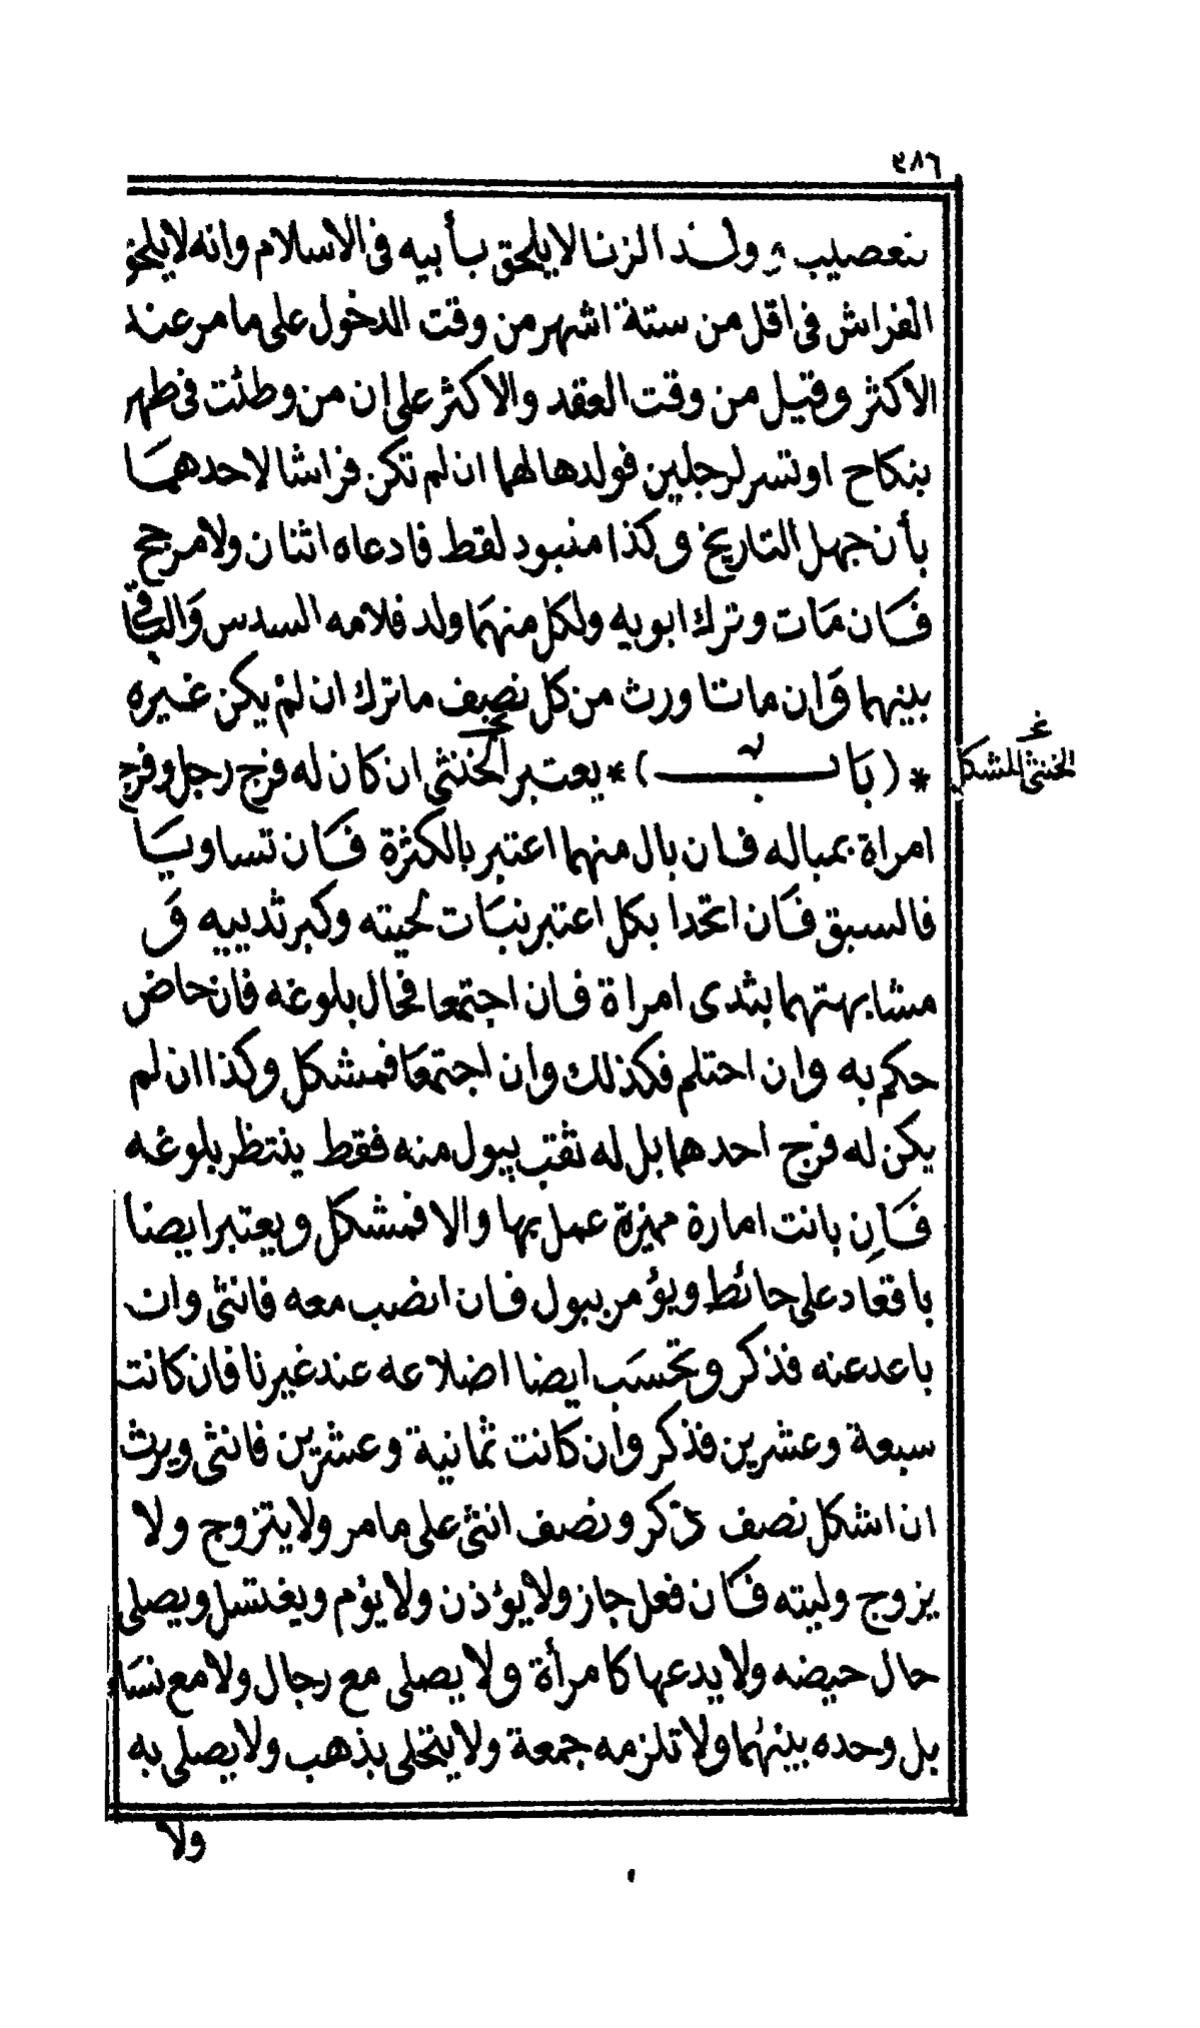 ٣٨٦
بتعصيب وولد الزنا لا يلحق بأبيه فى الاسلام وانه لا يلحق
الفراش فى اقل من ستة اشهر من وقت الدخول على ما مر عند
الاكثر وقيل من وقت العقد والاكثر على ان من وطئت فى طهر
بنكاح او تسر لرجلين فولدها لهما ان لم تكن فراشا لاحدهما
بأن جهل التاريخ وكذا منبوذ لقط فادعاه اثنان ولا مرجح
فان مات وترك ابويه ولكل منهما ولد فلامه السدس والباقى
بينهما وان ماتا ورث من كل نصف ما ترك ان لم يكن غيره
*( باب )* يعتبر الخنثى ان كان له فرج رجل وفرج
الخنثى المشكل
امراة بمباله فان بال منهما اعتبر بالكثرة فان تساويا
فالسبق فان اتحدا بكل اعتبر نبات لحيته وكبر ثدييه و
مشابهتهما بثدى امراة فان اجتمعا فحال بلوغه فان حاض
حكم به وان احتلم فكذلك وان اجتمعا فمشكل وكذا ان لم
يكن له فرج احدهما بل له ثقب يبول منه فقط ينتظر بلوغه
فان بانت امارة مميزة عمل بها والا فمشكل ويعتبر ايضا
باقعاد على حائط ويؤمر ببول فان انضب معه فانثى وان
باعد عنه فذكر وتحسب ايضا اضلاعه عند غيرنا فان كانت
سبعة وعشرين فذكر وان كانت ثمانية وعشرين فانثى ويرث
ان اشكل نصف ذكر ونصف انثى على ما مر ولا يتزوج ولا
يزوج وليته فان فعل جاز ولا يؤذن ولا يؤم ويغتسل ويصلى
حال حيضه ولا يدعها كامرأة ولا يصلى مع رجال ولا مع نساء
بل وحده بينهما ولا تلزمه جمعة ولا يتحلى بذهب ولا يصلى به
ولا